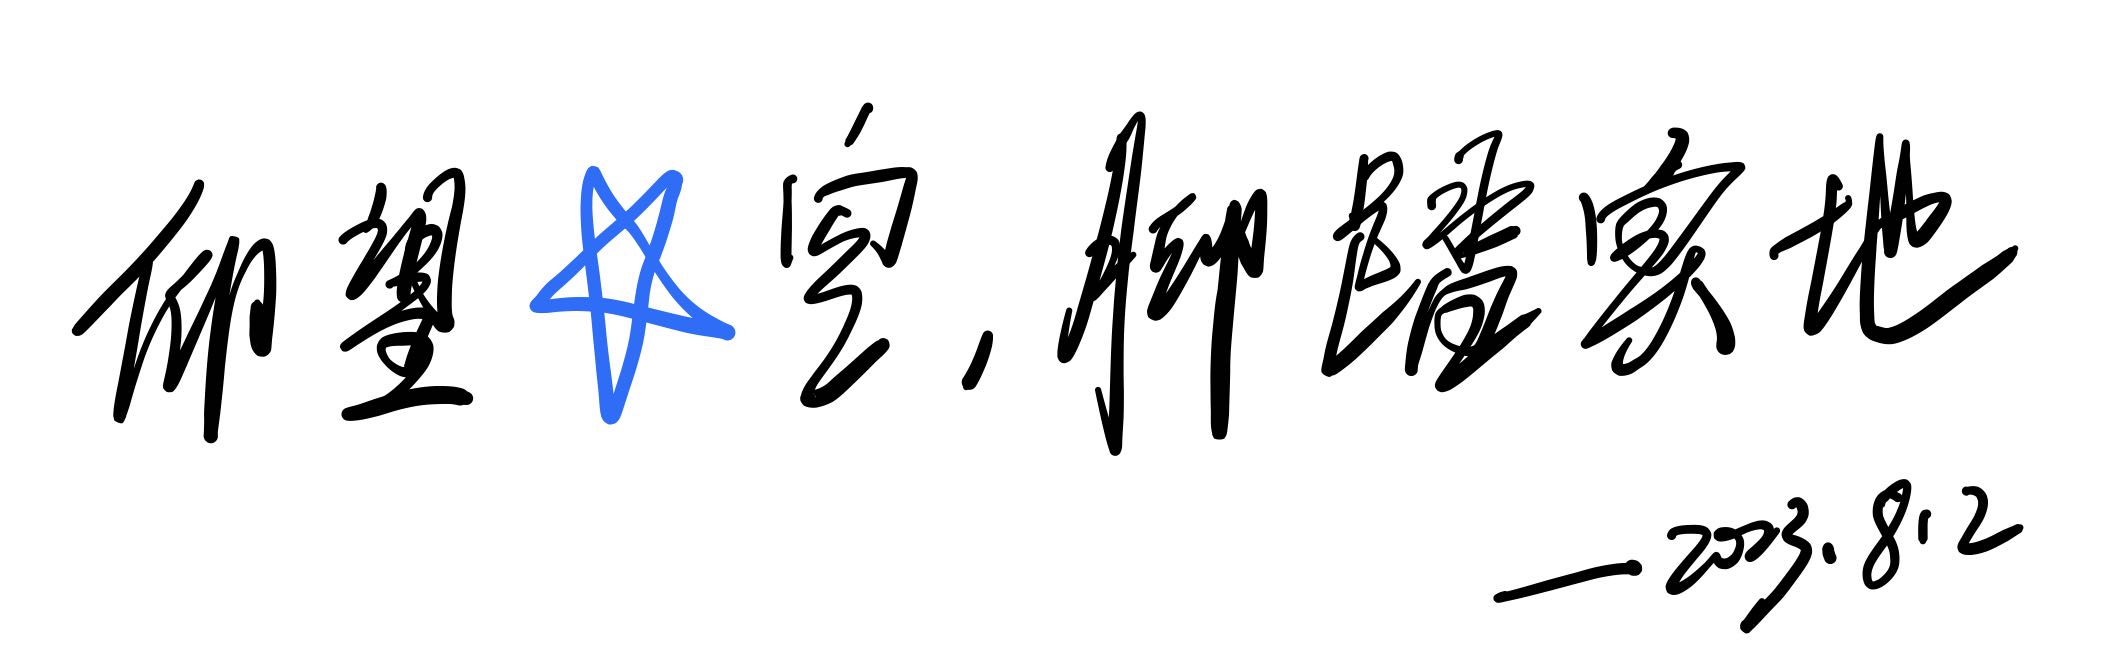 仰望☆空，脚踏实地
——2023.8.2